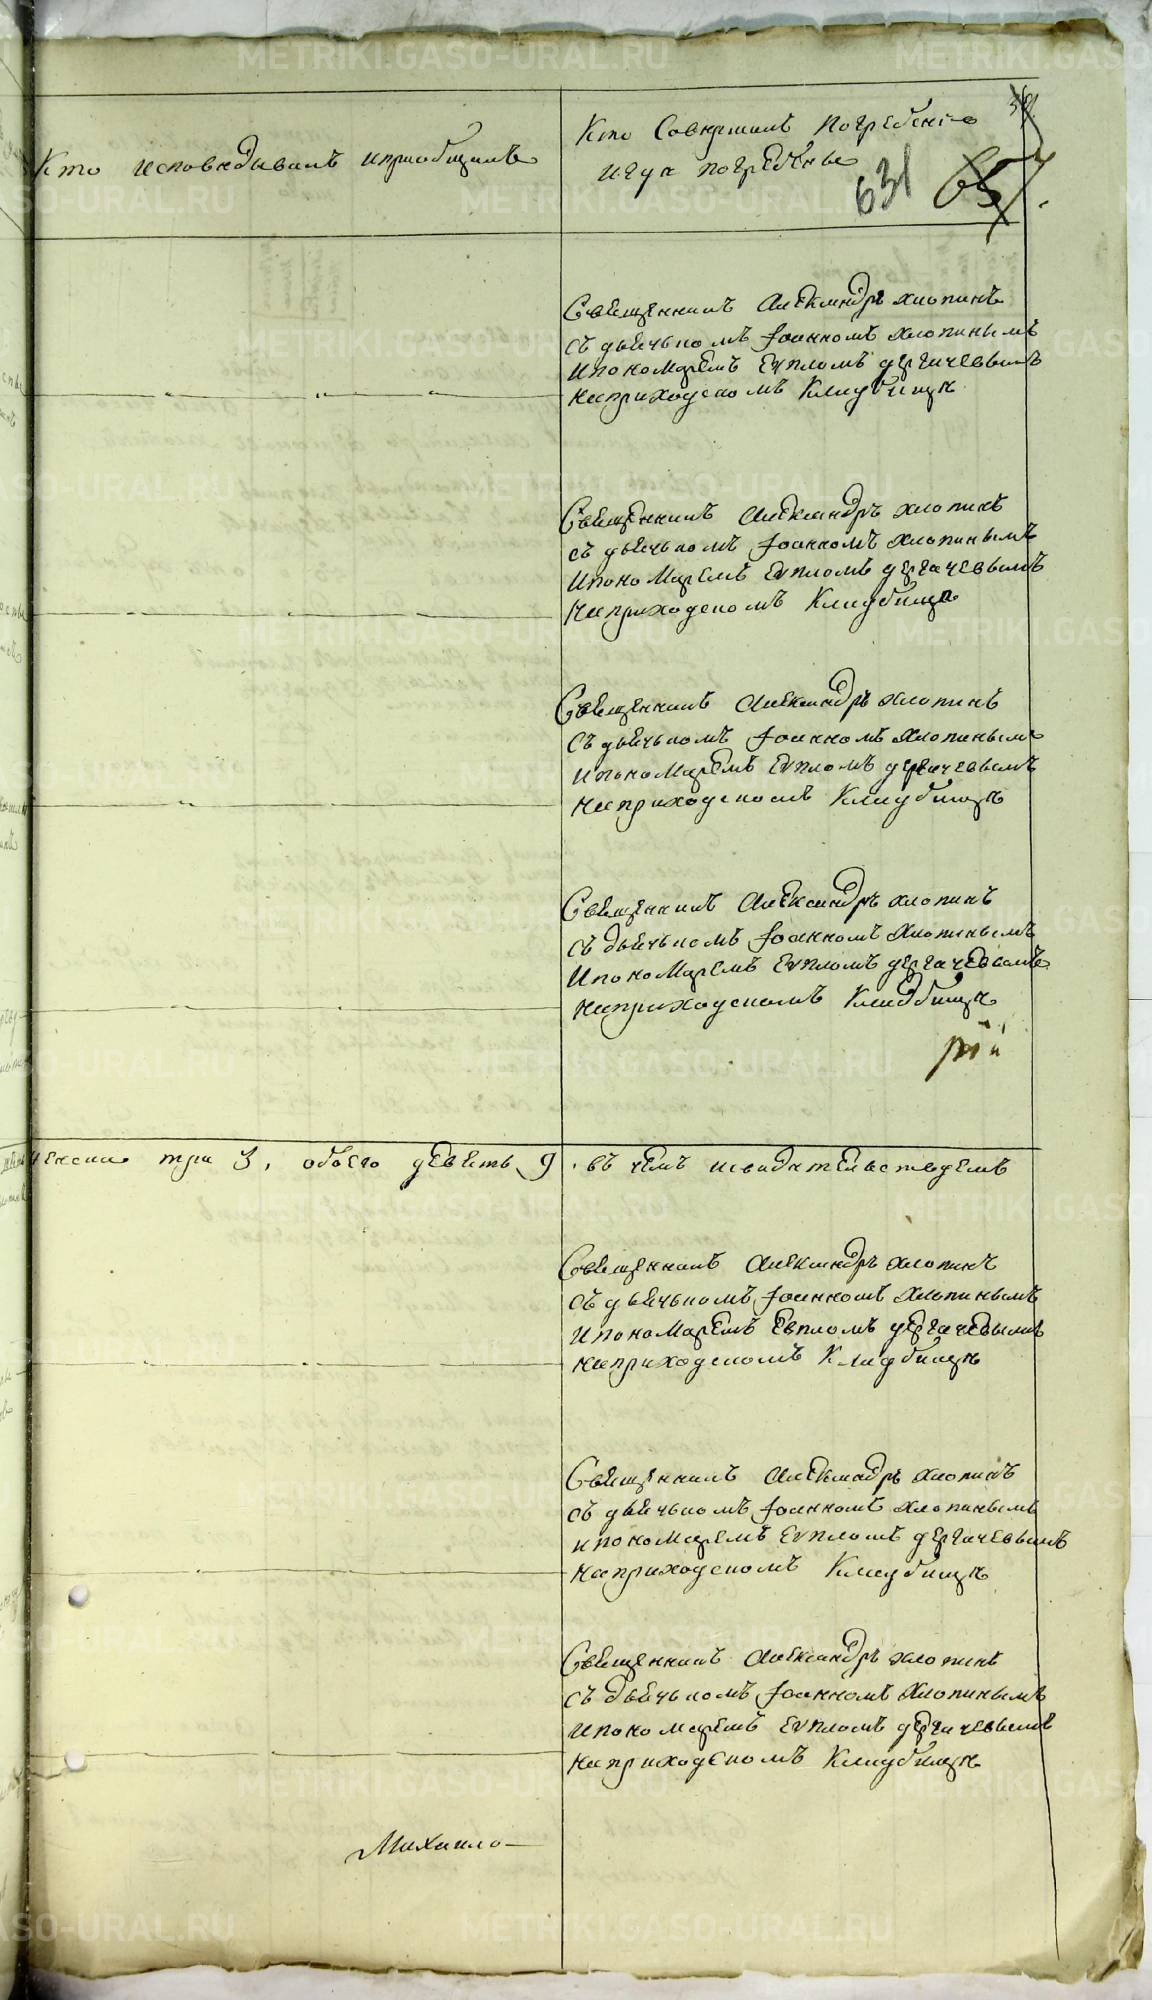 Кто исповедывалъ и приобщилъ
Кто Совершилъ Погребение
и где погребены
631
657.
Священникъ Александръ Хлопинъ
съ дьячькомъ Іоанномъ Хлопинымъ
и пономаремъ Еѵпломъ Дергачевымъ
На приходскомъ Кладбище
Священникъ Александръ Хлопинъ
съ дьячькомъ Іоанномъ Хлопинымъ
и пономаремъ Еѵпломъ Дергачевымъ
На приходскомъ Кладбище
Священникъ Александръ Хлопинъ
съ дьячькомъ Іоанномъ Хлопинымъ
и пономаремъ Еѵпломъ Дергачевымъ
На приходскомъ Кладбище
Священникъ Александръ Хлопинъ
съ дьячькомъ Іоанномъ Хлопинымъ
и пономаремъ Еѵпломъ Дергачевымъ
На приходскомъ Кладбище
женска три 3, обоего девять 9. въ чемъ и свидательствуемъ
Священникъ Александръ Хлопинъ
съ дьячькомъ Іоанномъ Хлопинымъ
и пономаремъ Евпломъ Дергачевымъ
На приходскомъ Кладбище
Священникъ Александръ Хлопинъ
съ дьячькомъ Іоанномъ Хлопинымъ
и пономаремъ Еѵпломъ Дергачевымъ
На приходскомъ Кладбище
Священникъ Александръ Хлопинъ
съ дьячькомъ Іоанномъ Хлопинымъ
и пономаремъ Еѵпломъ Дергачевымъ
На приходскомъ Кладбище
Михаило
METRIKI.GASO-URAL.RU